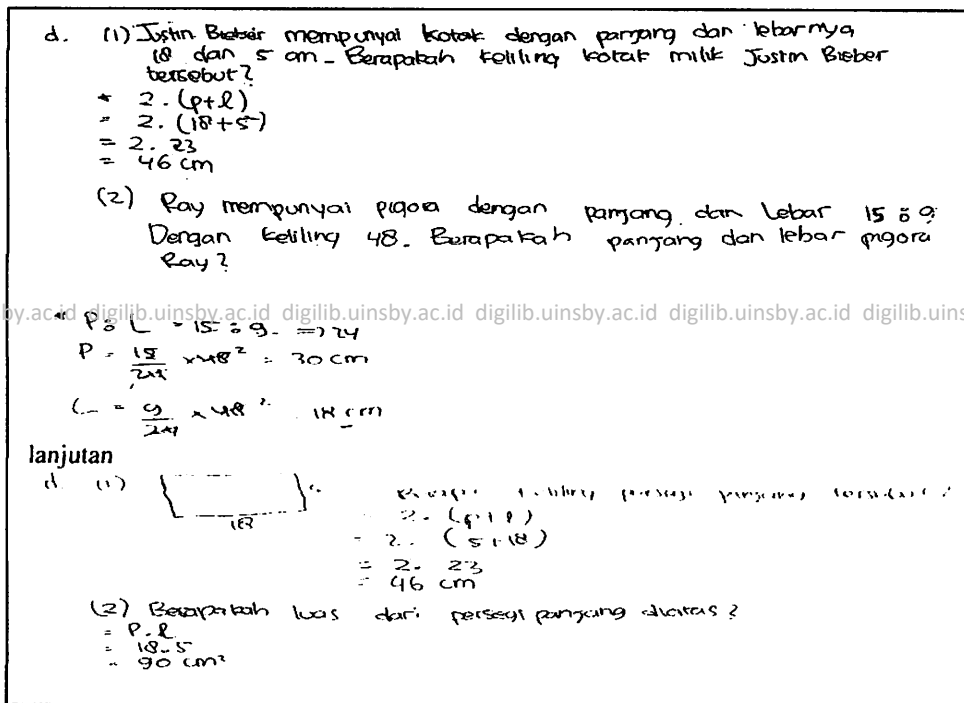 d. (1) Justin Bieber mempunyai kotak dengan panjang dan lebarnya
18 dan 5 cm. Berapakah keliling kotak milik Justin Bieber
tersebut?
* 2. (p+l)
= 2. (18+5)
= 2. 23
= 46 cm
(2) Ray mempunyai pigora dengan panjang dan lebar 15 : 9.
Dengan keliling 48. Berapakah panjang dan lebar pigora
Ray?
by.ac.id digilib.uinsby.ac.id digilib.uinsby.ac.id digilib.uinsby.ac.id digilib.uinsby.ac.id digilib.uins
* P : L = 15 : 9. => 24
P = 15/24 x 48 ² = 30 cm
L = 9/24 x 48 ² 18 cm
lanjutan
d. (1)
18
keliling persegi panjang tersebut?
= 2. (p+l)
= 2. (5+18)
= 2. 23
= 46 cm
(2) Berapakah luas dari persegi panjang diatas?
= P.l
= 18.5
= 90 cm²